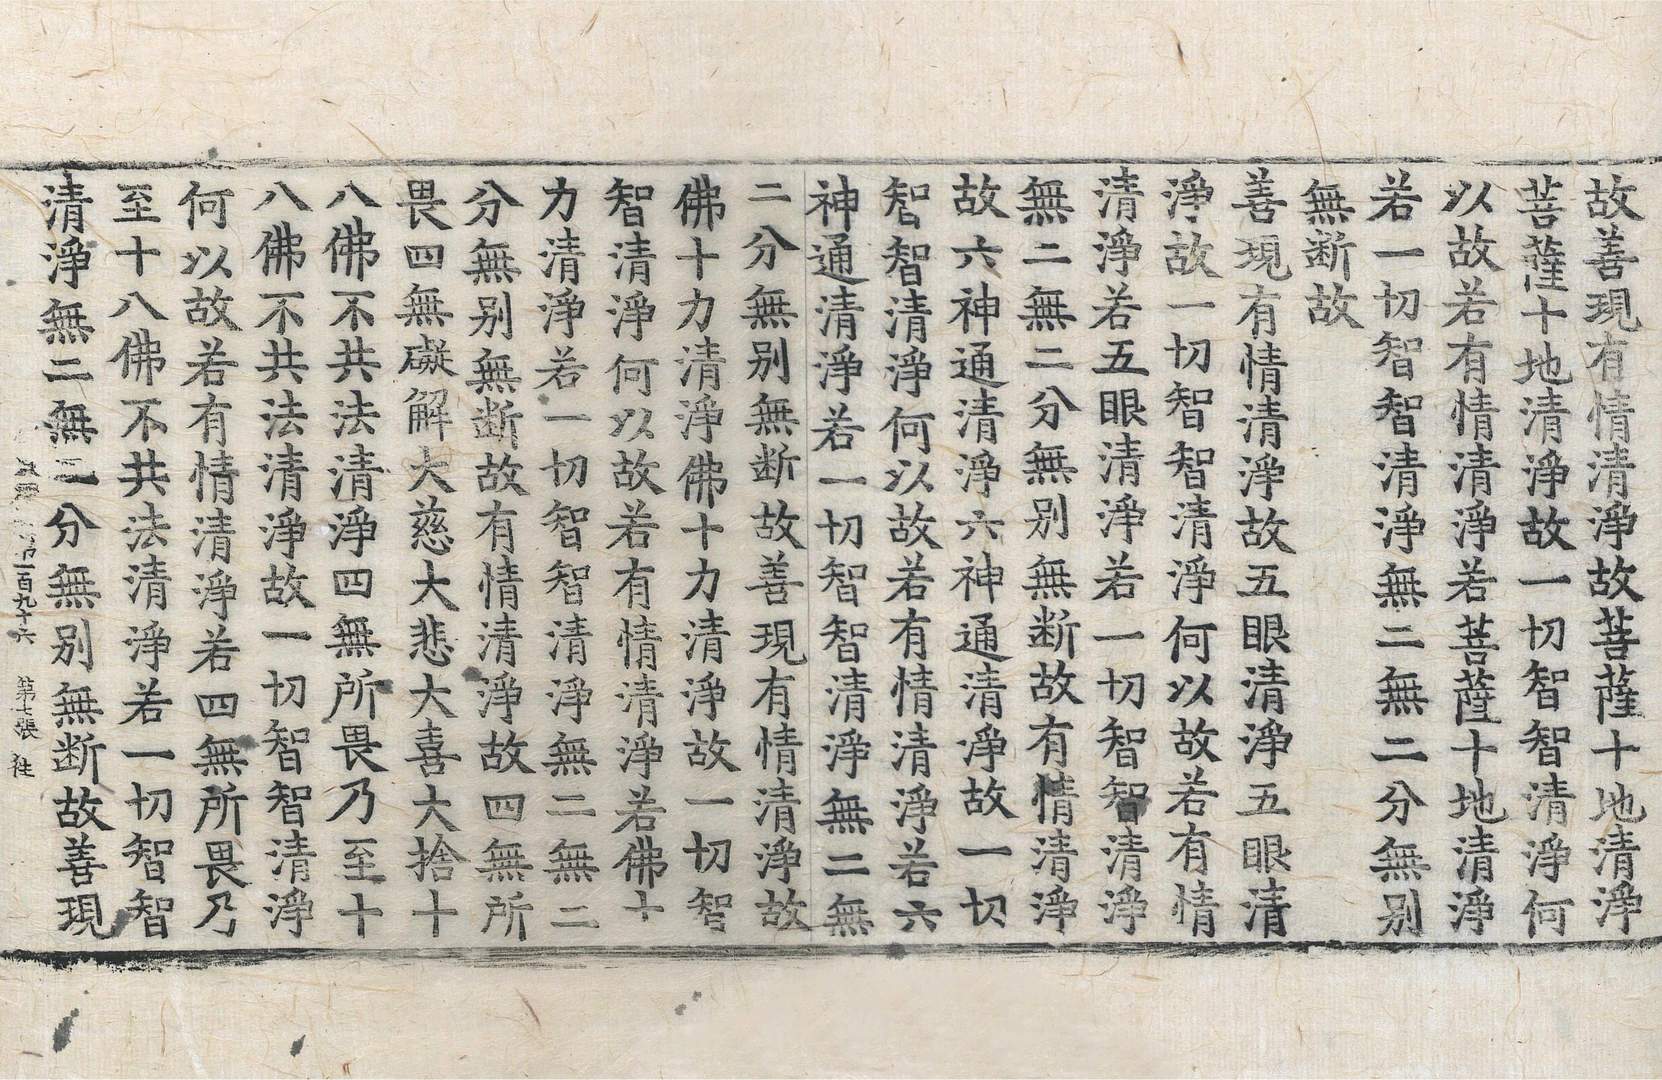 故善現有情清淨故菩薩十地清淨
菩薩十地清淨故一切智智清淨何
以故若有情清淨若菩薩十地清淨
若一切智智清淨無二無二分無别
無断故
善現有情清淨故五眼清淨五眼清
淨故一切智智清淨何以故若有情
清淨若五眼清淨若一切智智清淨
無二無二分無别無断故有情清淨
故六神通清淨六神通清淨故一切
智智清淨何以故若有情清淨若六
神通清淨若一切智智清淨無二無
二分無别無断故善現有情清淨故
佛十力清淨佛十力清淨故一切智
智清淨何以故若有情清淨若佛十
力清淨若一切智智清淨無二無二
分無别無断故有情清淨故四無所
畏四無礙解大慈大悲大喜大捨十
八佛不共法清淨四無所畏乃至十
八佛不共法清淨故一切智智清淨
何以故若有情清淨若四無所畏乃
至十八佛不共法清淨若一切智智
清淨無二無二分無别無断故善現
第一百九十六 第七張